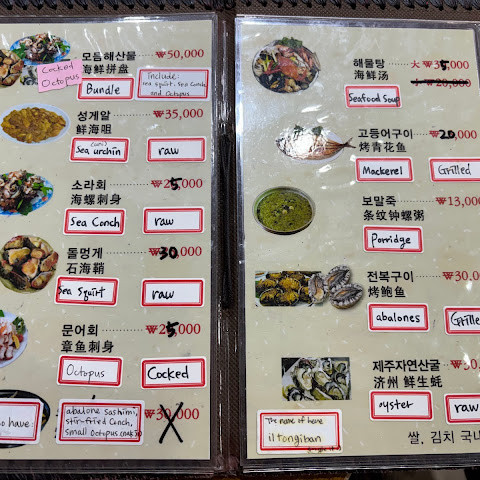 모듬해산물
₩50,000
海鮮拼盘
Cocked
Octopus
Bundle
Include:
sea squirt, Sea Conch
and Octopus
성게알
₩35,000
鮮海咀
(uni)
Sea urchin
raw
소라회
海螺刺身
Sea Conch
raw
돌멍게
₩30,000
石海鞘
Sea Squirt
raw
문어회
章鱼刺身
Octopus
Cocked
so have:
abalone sashimi,
stir-fried Conch,
small Octopus
₩30,000
해물탕
大 ₩35,000
海鮮汤
Seafood Soup
고등어구이
₩20,000
烤青花鱼
Mackerel
Grilled
보말죽
₩13,000
条纹钟螺粥
Porridge
전복구이
₩30,00
烤鲍鱼
abalones
Grille
제주자연산굴
济州 鲜生蚝
oyster
raw
The name of here:
il tongiban
쌀, 김치 국내